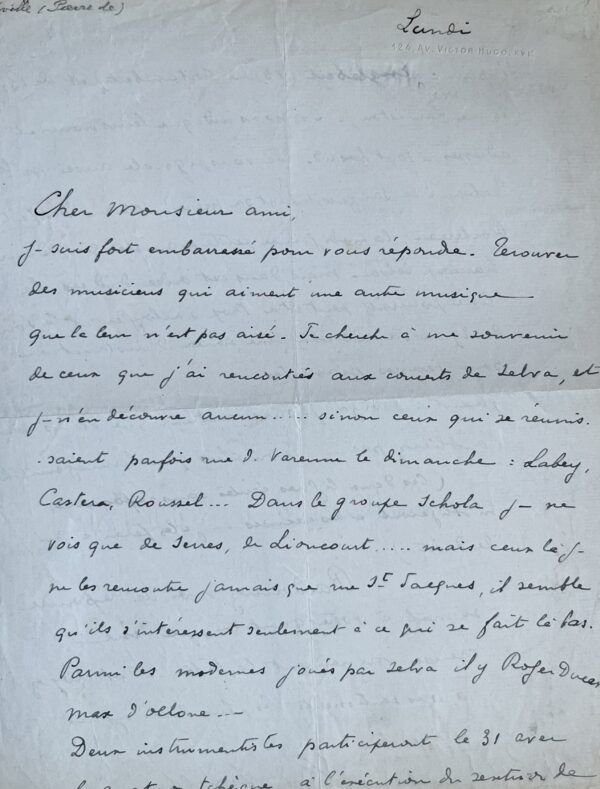 ville (Pierre de)
Lundi
126, AV. VICTOR HUGO. XVIe
Cher Monsieur ami,
J- suis fort embarrassé pour vous répondre. Trouver
des musiciens qui aiment une autre musique
que la leur n'est pas aisé. Je cherche à me souvenir
de ceux que j'ai rencontrés aux concerts de Selva, et
j- n'en découvre aucun..... sinon ceux qui se réunis-
saient parfois rue d. Varenne le dimanche : Labey,
Castera, Roussel... Dans le groupe Schola j- ne
vois que de Serres, de Lioncourt..... mais ceux là j-
ne les rencontre jamais que rue St. Jacques, il semble
qu'ils s'intéressent seulement à ce qui se fait là bas.
Parmi les modernes joués par Selva il y Roger Ducas
Max d'Ollone...
Deux instrumentistes participeront le 31 avec
tchèque à l'exécution du sentier de